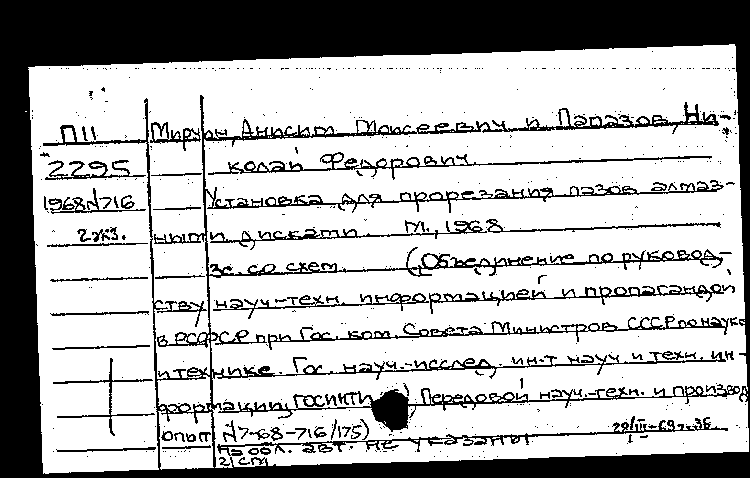 П11 Мирчин, Анисим Моисеевич и Папазов, Ни-
2295 колай Федорович.
1968 N716 Установка для прорезания пазов алмаз-
2 экз. ными дисками. М., 1968
3с. со схем. (Объединение по руковод-
ству науч-техн. информацией и пропагандой
в РСФСР при Гос. ком. Совета Министров СССР по науке
и технике. Гос. науч.-исслед. ин-т науч. и техн. ин-
формации, ГОСИНТИ) Передовой науч.-техн. и производ
опыт N7-68-716/175)
На обл. авт. не указаны
21 см.